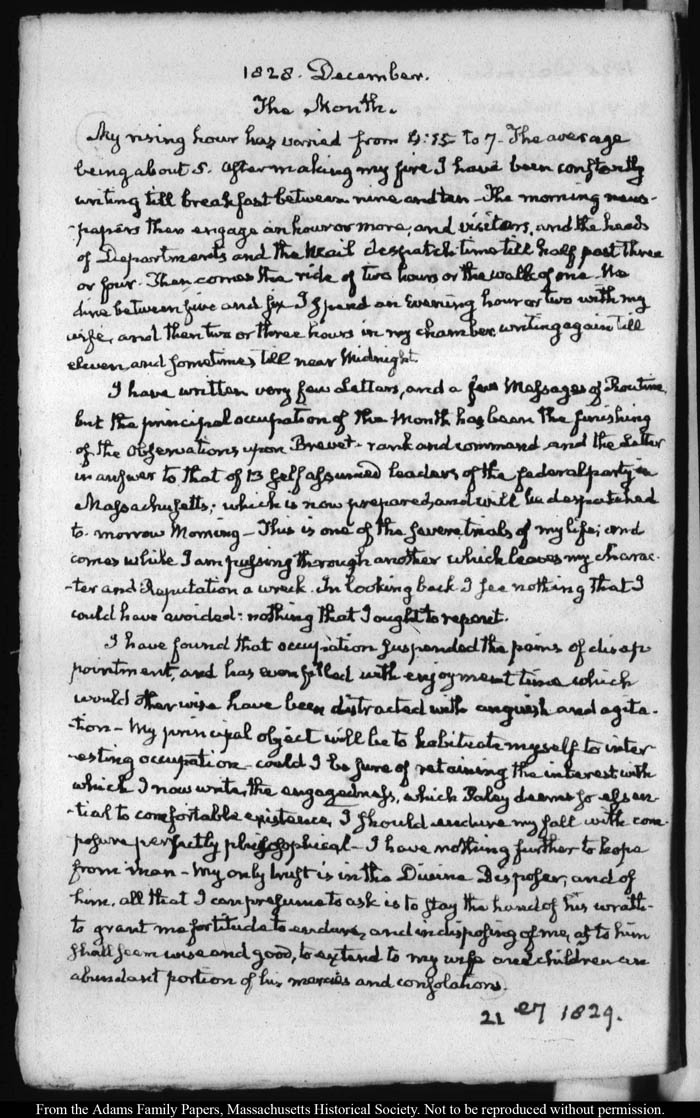 1828. December.
The Month.
My rising hour has varied from 4:15 to 7. The average
being about 5. After making my fire I have been constantly
writing till breakfast between nine and ten – The morning news-
-papers then engage an hour or more, and visitors, and the heads
of Departments and the Mail despatch time till half past three
or four. Then comes the ride of two hours or the walk of one. We
dine between five and six. I spend an Evening hour or two with my
wife, and then two or three hours in my chamber, writing again till
eleven and sometimes till near Midnight.
I have written very few Letters, and a few Messages of Routine,
but the principal occupation of the Month has been the finishing
of the Observations upon Brevet-rank and command and the Letter
in answer to that of 13 self assumed leaders of the federal party in
Massachusetts; which is now prepared, and will be despatched
to-morrow Morning – This is one of the severe trials of my life; and
comes while I am passing through another which leaves my charac-
-ter and Reputation a wreck. In looking back I see nothing that I
could have avoided: nothing that I ought to repent.
I have found that occupation suspended the pains of disap
pointment, and has even filled with enjoyment time which
would otherwise have been distracted with anguish and agita-
-tion – My principal object will be to habituate myself to inter-
-esting occupation – could I be sure of retaining the interest with
which I now write, the engagedness, which Paley deems so essen-
-tial to comfortable existence, I should endure my fall with com-
posure perfectly philosophical – I have nothing further to hope
from man – My only trust is in the Divine Disposer, and of
him, all that I can presume to ask is to stay the hand of his wrath –
to grant me fortitude to endure, and in disposing of me, as to him
shall seem wise and good, to extend to my wife and children an
abundant portion of his mercies and consolations.
21 1829.
From the Adams Family Papers, Massachusetts Historical Society. Not to be reproduced without permission.